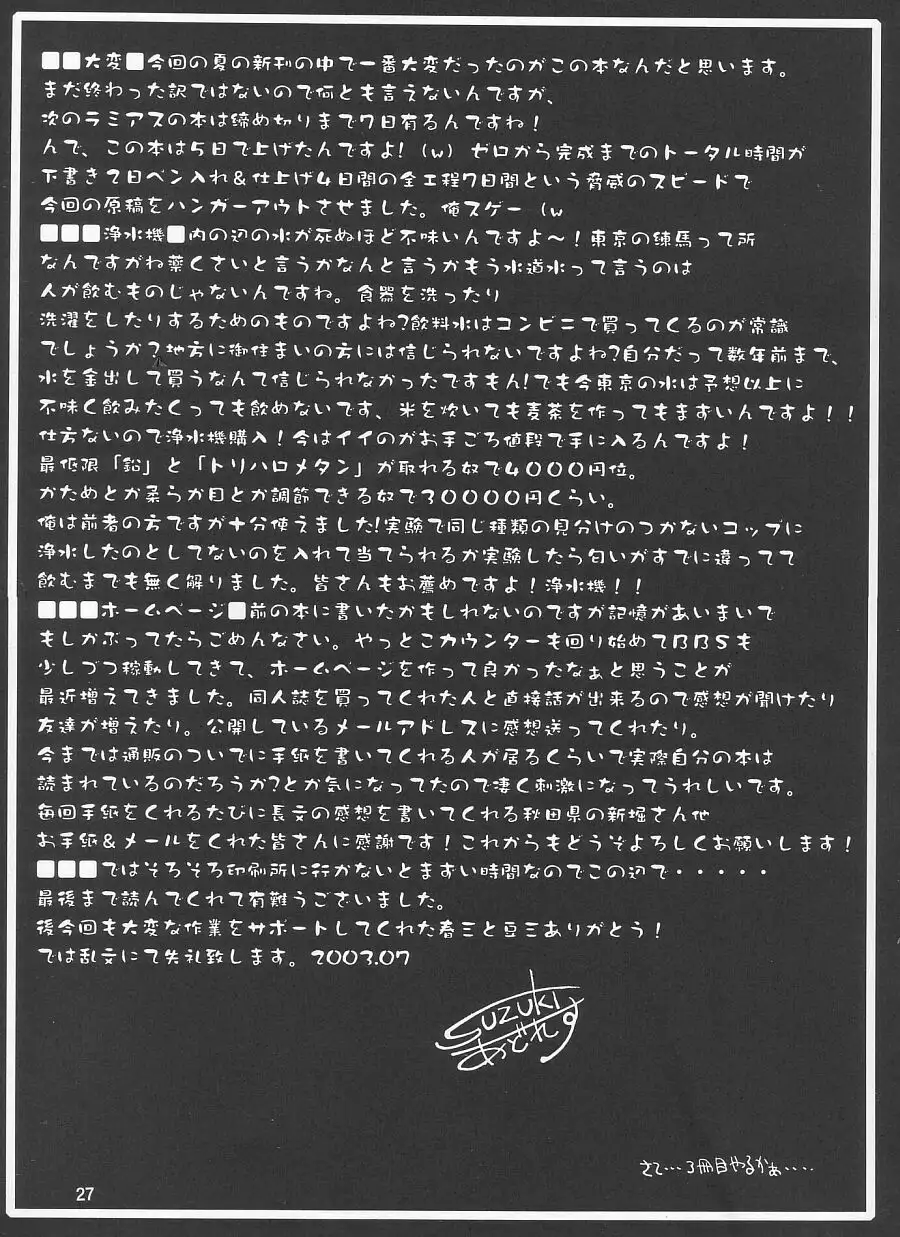 ■■大変■今回の夏の新刊の中で一番大変だったのがこの本なんだと思います。
まだ終わった訳ではないので何とも言えないんですが、
次のラミアスの本は締め切りまで7日有るんですね！
んで、この本は5日で上げたんですよ!（w）ゼロから完成までのトータル時間が
下書き2日ペン入れ＆仕上げ4日間の全工程7日間という脅威のスピードで
今回の原稿をハンガーアウトさせました。俺スゲー（w
■■■浄水機■内の辺の水が死ぬほど不味いんですよ～！東京の練馬って所
なんですがね薬くさいと言うかなんと言うかもう水道水って言うのは
人が飲むものじゃないんですね。食器を洗ったり
洗濯をしたりするためのものですよね?飲料水はコンビニで買ってくるのが常識
でしょうか?地方に御住まいの方には信じられないですよね?自分だって数年前まで、
水を金出して買うなんて信じられなかったですもん!でも今東京の水は予想以上に
不味く飲みたくっても飲めないです、米を炊いても麦茶を作ってもまずいんですよ！！
仕方ないので浄水機購入！今はイイのがお手ごろ値段で手に入るんですよ！
最低限「鉛」と「トリハロメタン」が取れる奴で4000円位。
かためとか柔らか目とか調節できる奴で30000円くらい。
俺は前者の方ですが十分使えました!実験で同じ種類の見分けのつかないコップに
浄水したのとしてないのを入れて当てられるか実験したら匂いがすでに違ってて
飲むまでも無く解りました。皆さんもお薦めですよ！浄水機！！
■■■ホームページ■前の本に書いたかもしれないのですが記憶があいまいで
もしかぶってたらごめんなさい。やっとこカウンターも回り始めてBBSも
少しづつ稼動してきて、ホームページを作って良かったなぁと思うことが
最近増えてきました。同人誌を買ってくれた人と直接話が出来るので感想が聞けたり
友達が増えたり。公開しているメールアドレスに感想送ってくれたり。
今までは通販のついでに手紙を書いてくれる人が居るくらいで実際自分の本は
読まれているのだろうか?とか気になってたので凄く刺激になってうれしいです。
毎回手紙をくれるたびに長文の感想を書いてくれる秋田県の新堀さん他
お手紙＆メールをくれた皆さんに感謝です！これからもどうぞよろしくお願いします！
■■■ではそろそろ印刷所に行かないとまずい時間なのでこの辺で・・・・・
最後まで読んでくれて有難うございました。
後今回も大変な作業をサポートしてくれた春三と豆三ありがとう！
では乱文にて失礼致します。2003.07
SUZUKI
あどれす
さて…3冊目やるかぁ‥‥
27